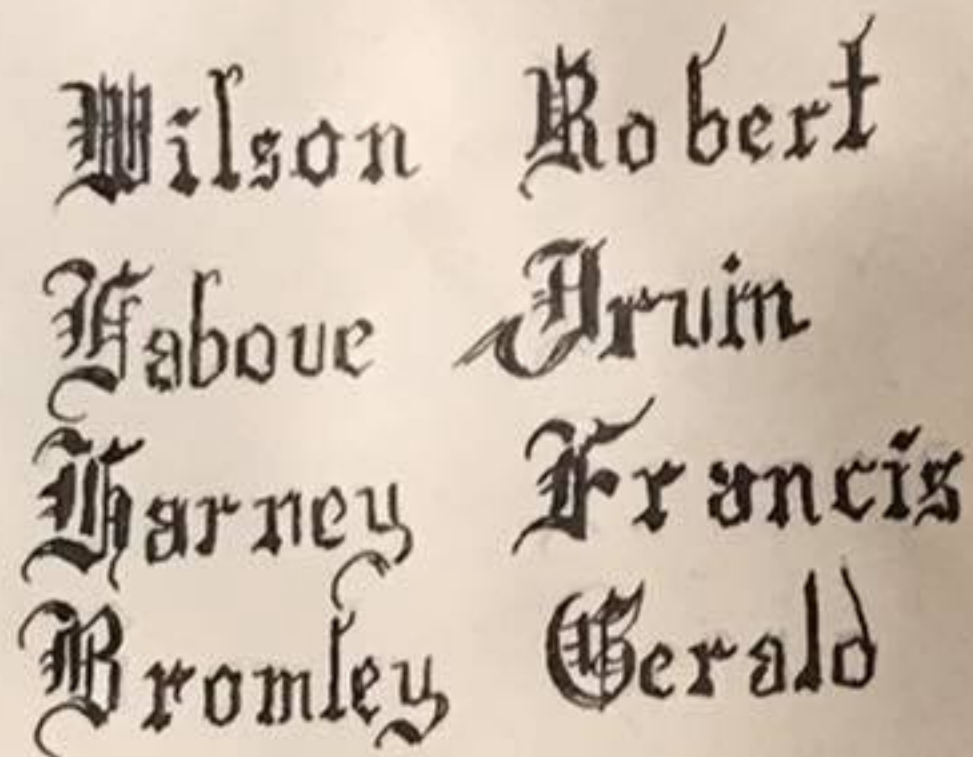 Wilson Robert
Labove Irvin
Harney Francis
Bromley Gerald